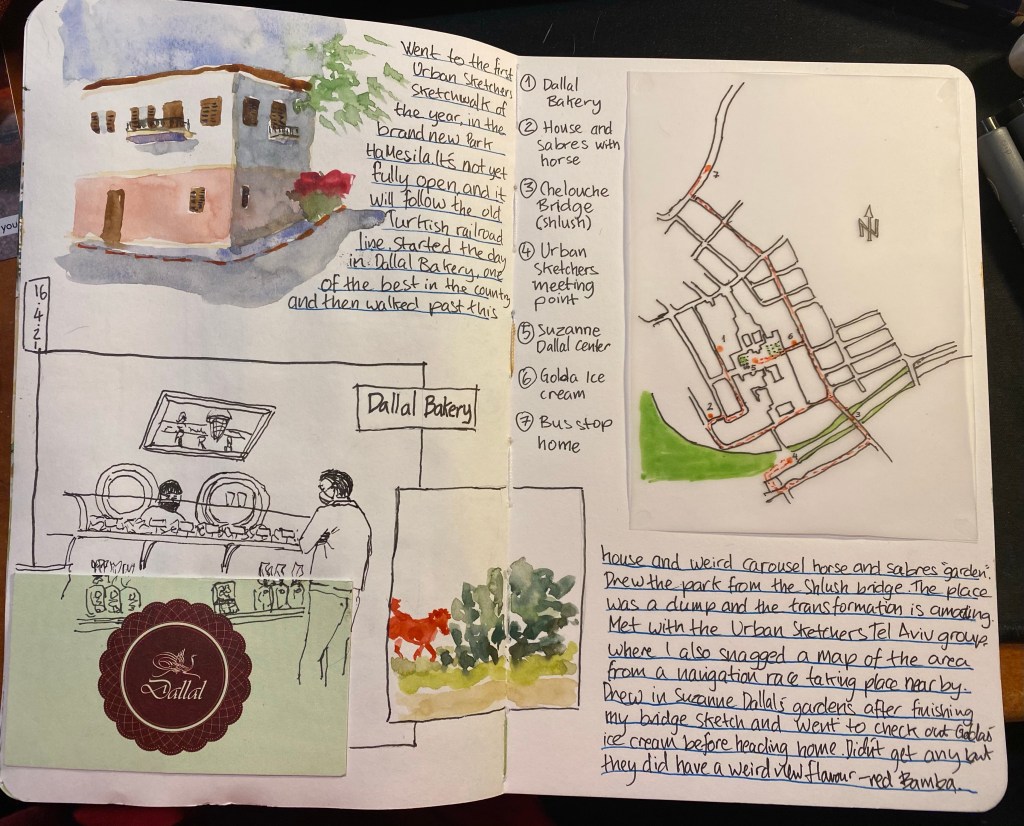 Went to the first
Urban Sketchers
Sketchwalk of
the year, in the
brand new Park
HaMesila. It's not yet
fully open, and it
will follow the old
Turkish railroad
line. Started the day
in Dallal Bakery, one
of the best in the country
and then walked past this
16
4
21
Dallal Bakery
Dallal
① Dallal
Bakery
② House and
sabres with
horse
③ Chelouche
Bridge
(shlush)
④ Urban
Sketchers
meeting
point
⑤ Suzanne
Dallal Center
⑥ Golda Ice
cream
⑦ Bus stop
home
7
N
1
6
5
2
3
4
house and weird carousel horse and sabres "garden".
Drew the park from the Shlush bridge. The place
was a dump and the transformation is amazing.
Met with the Urban Sketchers Tel Aviv group
where I also snagged a map of the area
from a navigation race taking place nearby.
Drew in Suzanne Dallal's gardens after finishing
my bridge sketch and went to check out Golda's
ice cream before heading home. Didn't get any but
they did have a weird new flavour - red Bamba.
you